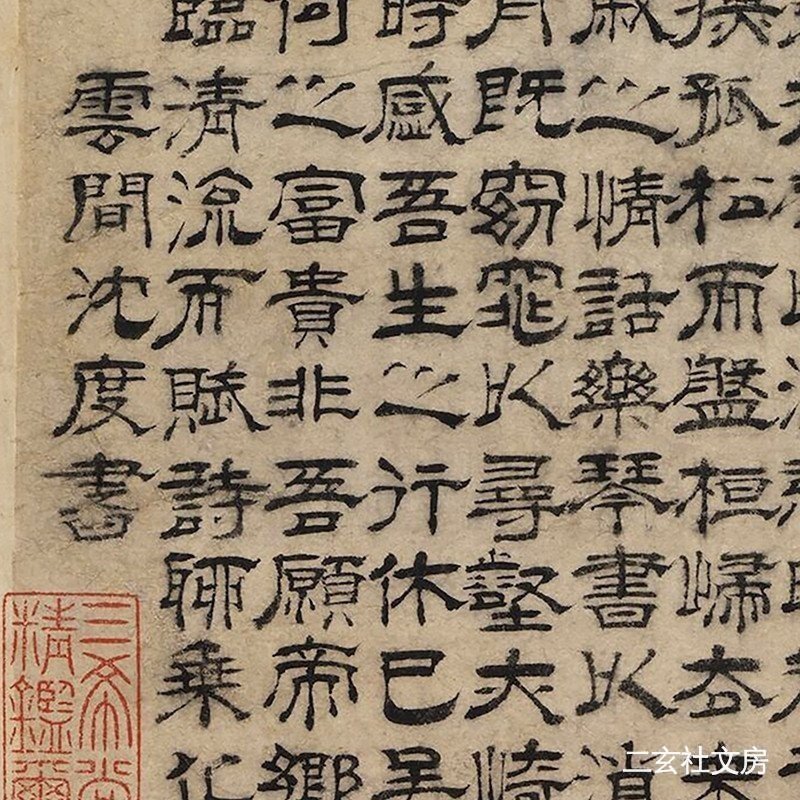 撫孤松而盤桓歸去
戚之情話樂琴書以消
舟既窈窕以尋壑亦崎
時感吾生之行休已矣
何之富貴非吾願帝鄉
臨清流而賦詩聊乘化
雲間沈度書
三希堂
精鑑璽
二玄社文房